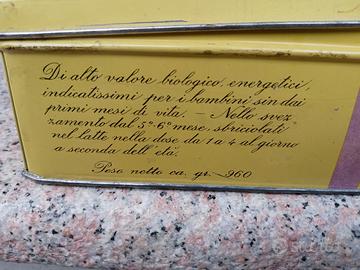 Di alto valore biologico, energetici,
indicatissimi per i bambini sin dai
primi mesi di vita. - Nello svez
zamento dal 5º-6º mese, sbriciolati
nel latte nella dose da 1 a 4 al giorno
a seconda dell'età.
Peso netto ca. gr. 960